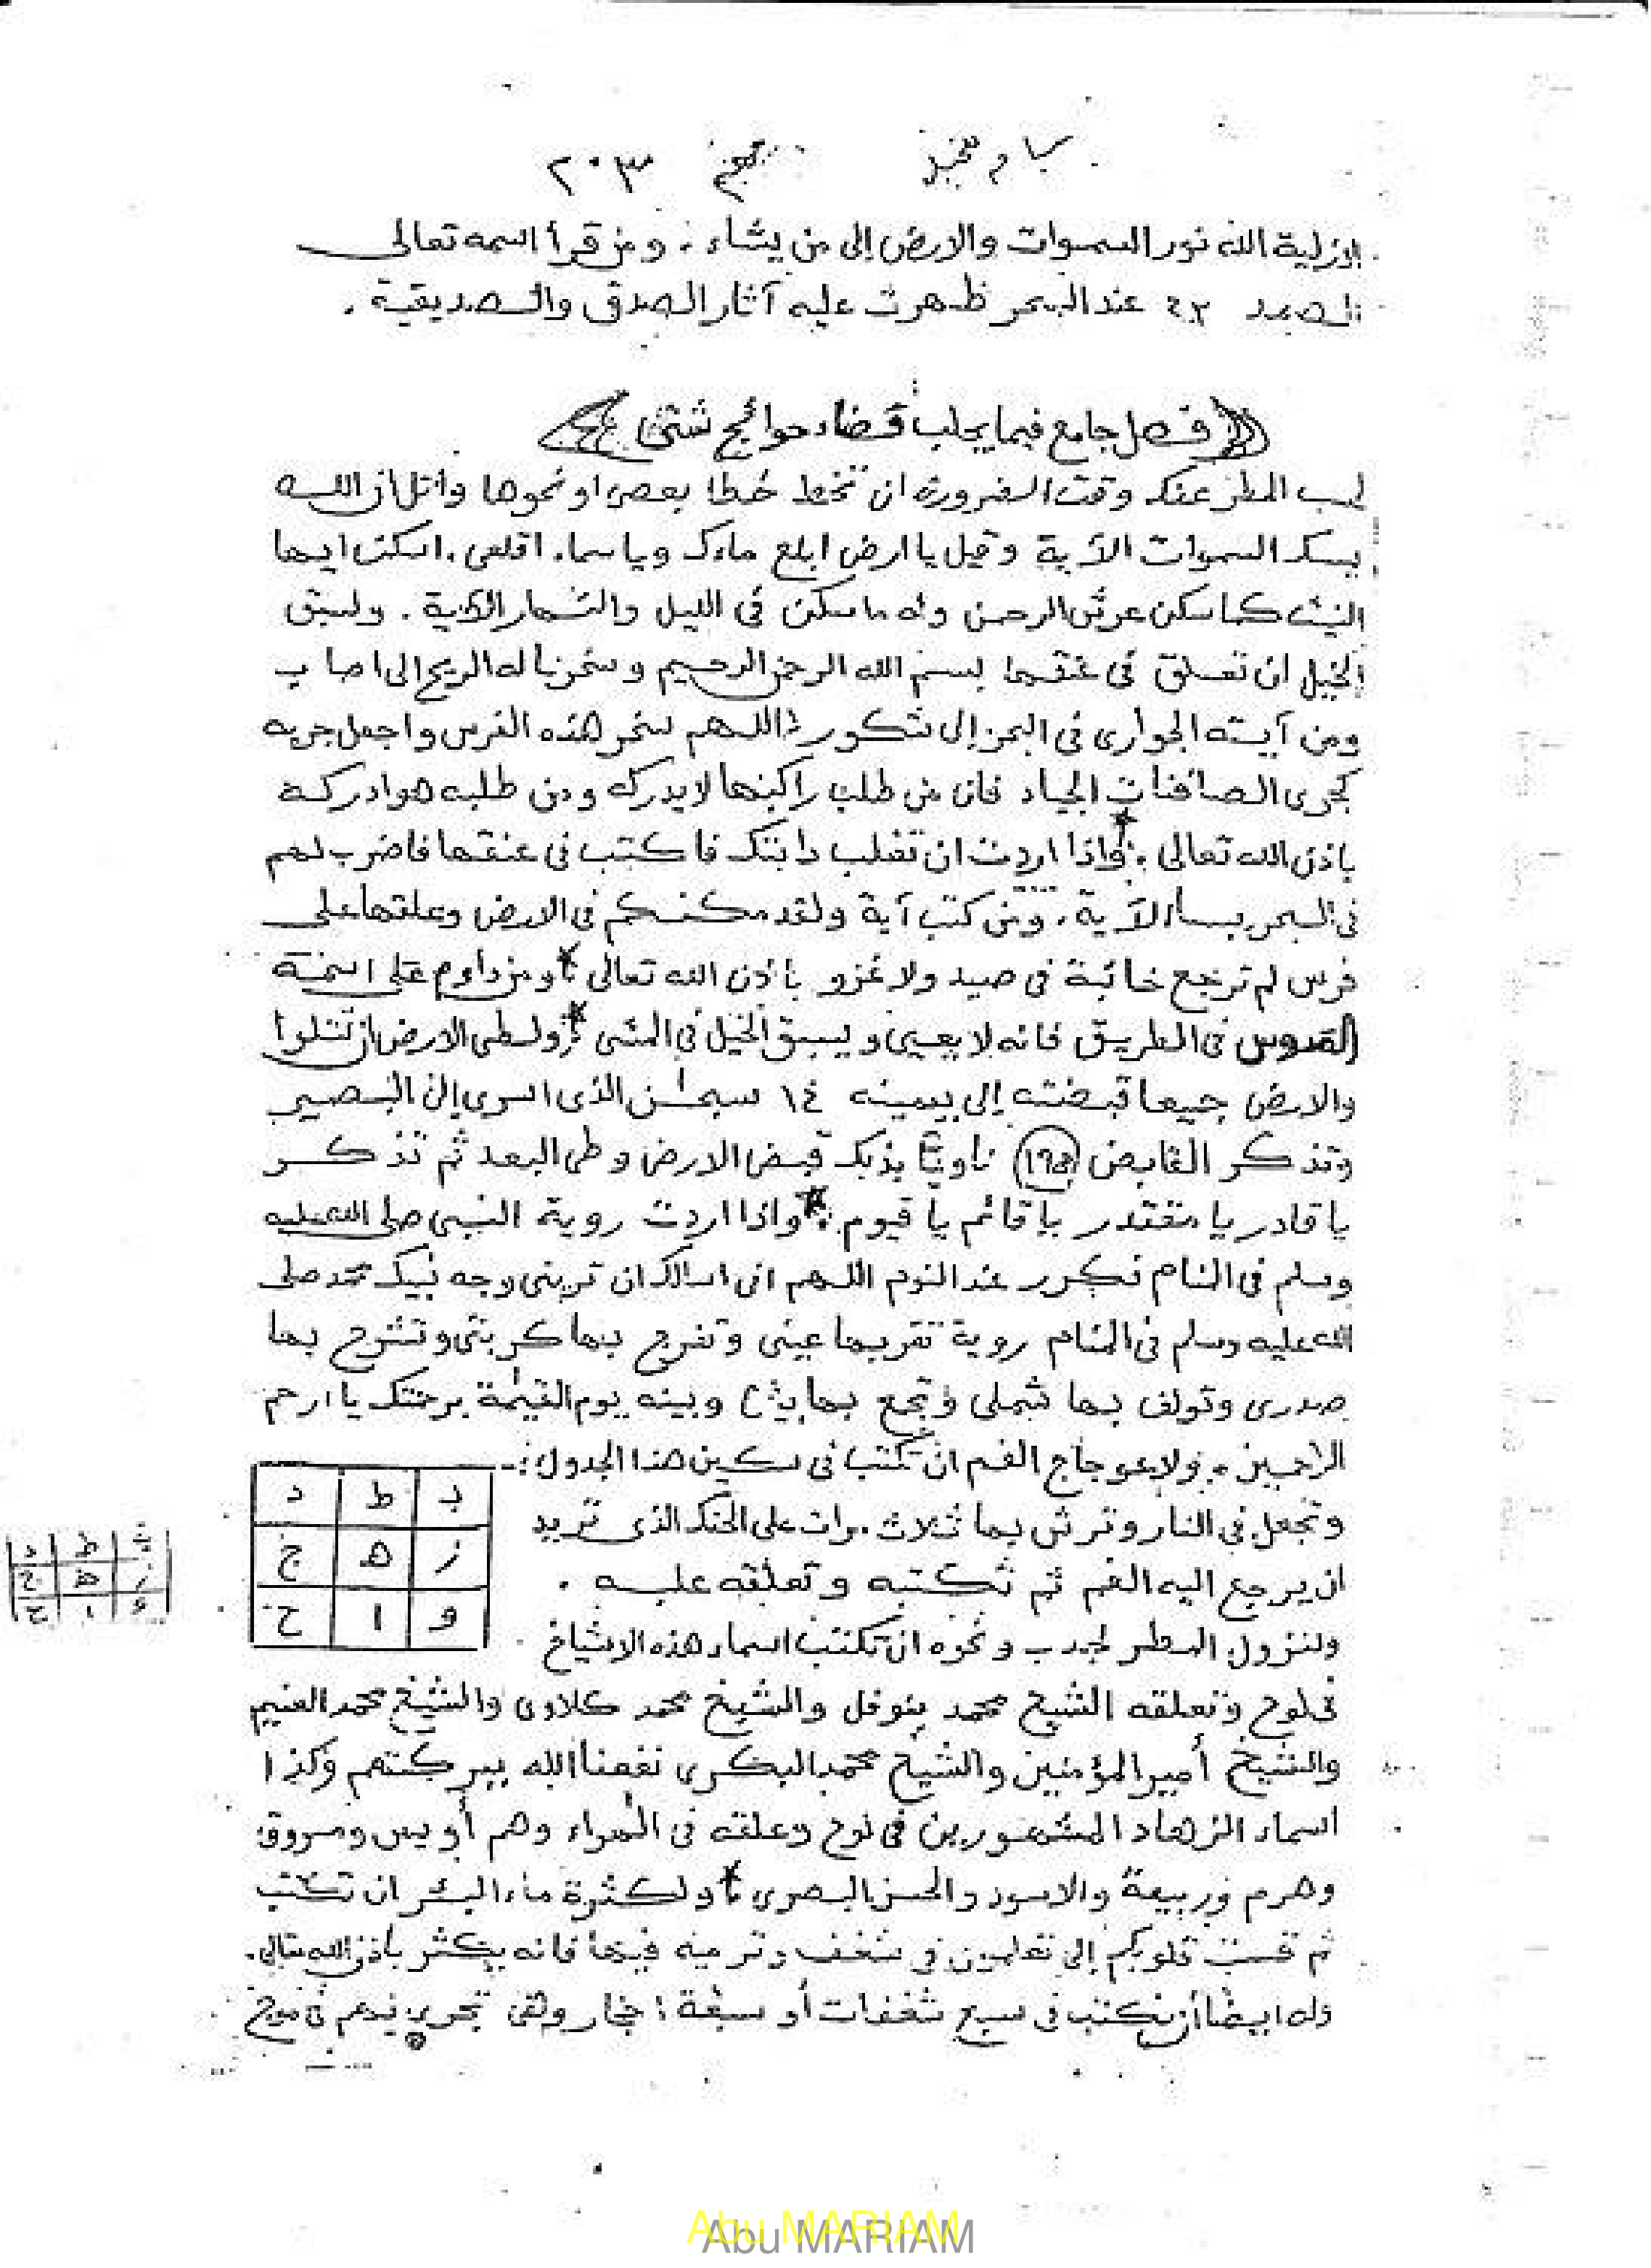 ٢٠٣
الله نور السموات والارض إلى من يشاء . ومن قرأ اسمه تعالى
الصمد ٤٣ عند السحر ظهرت عليه آثار الصدق والصديقية .
فصل جامع فيما يجلب قضاء حوائج شتى
المطر عنك وقت الضرورة ان تخط خطا بعصى او نحوها واتل ان الله
يمسك السموات الآية وقيل يا ارض ابلعي ماءك ويا سماء اقلعي . اسكن ايها
كما سكن عرش الرحمن وله ما سكن في الليل والنهار الآية . ولسبق
الخيل ان تعلق في عنقها بسم الله الرحمن الرحيم وسخرنا له الريح الى اصاب
ومن آيته الجوارى فى البحر إلى شكور اللهم سخر هذه الفرس واجعل جريه
كجرى الصافنات الجياد فان من طلب راكبها لا يدركه ومن طلبه هو ادركه
باذن الله تعالى . واذا اردت ان تغلب دابتك فاكتب فى عنقها فاضرب لهم
فى البحر يبسا الآية . ومن كتب آية ولقد مكنكم فى الارض وعلقها على
فرس لم ترجع خائبة فى صيد ولا غزو باذن الله تعالى ومن داوم على اسمه
القدوس فى الطريق فانه لا يعيى ويسبق الخيل في المشى ولطى الارض ان تتلوا
والارض جميعا قبضته إلى بيمينه ١٤ سبحن الذى اسرى إلى البصير
وتذكر القابض ناويا بذلك قبض الارض وطى البعد ثم تذكر
يا قادر يا مقتدر يا قائم يا قيوم . واذا اردت روية النبى صلى الله عليه
وسلم فى المنام تكرر عند النوم اللهم انى اسالك ان ترينى وجه نبيك محمد صلى
الله عليه وسلم فى المنام روية تقر بها عينى وتفرج بها كربتى وتشرح بها
صدرى وتولف بها شملى وتجمع بها بينى وبينه يوم القيمة برحمتك يا ارحم
الراحمين . ولاعوجاج الفم ان تكتب فى سكين هذا الجدول :-
ب ط د
ز ه ج
و ا ح
وتجعل فى النار وترش بها ثلاث مرات على الحنك الذى تريد
ان يرجع اليه الفم ثم تكتبه وتعلقه عليه .
ولنزول المطر لجدب ونحوه ان تكتب اسماء هذه الاشياخ
فى لوح وتعلقه الشيخ محمد بنوفل والشيخ محمد كلاوى والشيخ محمد الغنيم
والشيخ أمير المؤمنين والشيخ محمد البكرى نفعنا الله ببركتهم وكذا
اسماء الزهاد المشهورين فى لوح وعلقه فى الهواء وهم أويس ومسروق
وهرم وربيعة والاسود والحسن البصرى ولكثرة ماء البئر ان تكتب
ثم قست قلوبكم إلى تعلمون فى شغف وترميه فيها فانه يكثر باذن الله تعالى .
وله ايضا أن يكتب فى سبع شغفات أو سبعة احجار وهى تجرى بهم فى موج
Abu MARIAM
Abu MARIAM